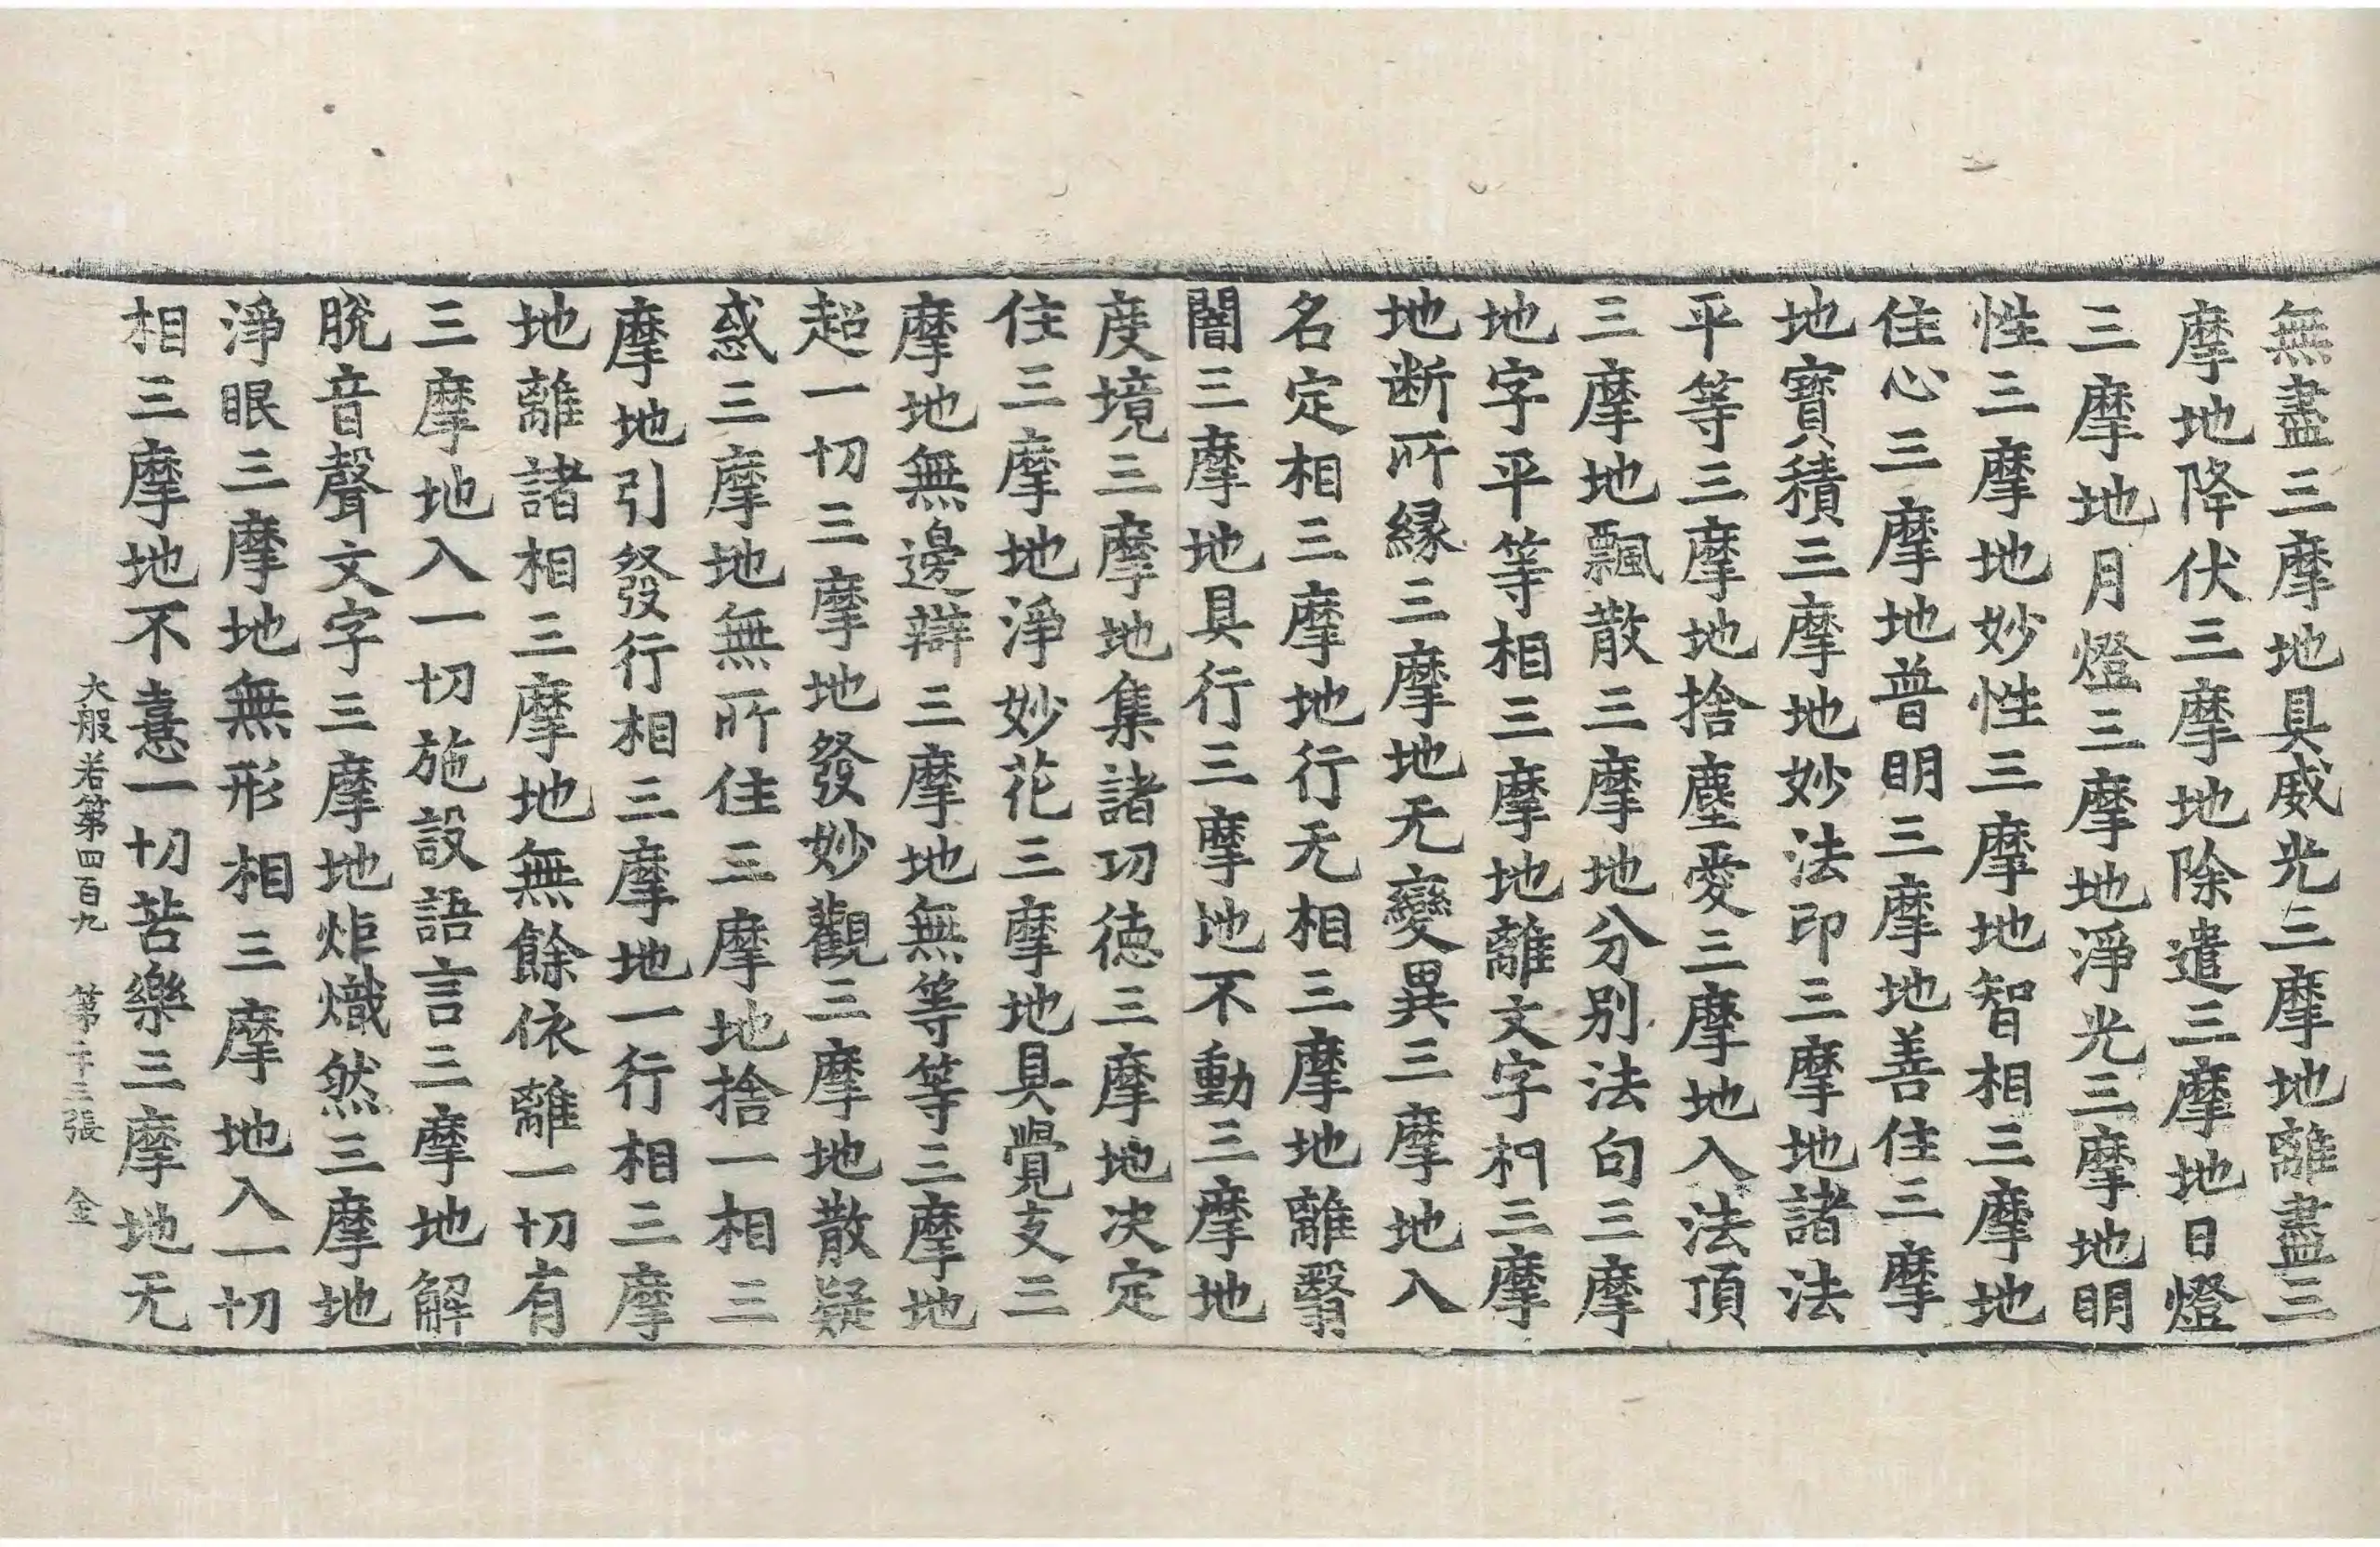 無盡三摩地具威光三摩地離盡三
摩地降伏三摩地除遣三摩地日燈
三摩地月燈三摩地淨光三摩地明
性三摩地妙性三摩地智相三摩地
住心三摩地普明三摩地善住三摩
地寶積三摩地妙法印三摩地諸法
平等三摩地捨塵愛三摩地入法頂
三摩地飄散三摩地分別法句三摩
地字平等相三摩地離文字相三摩
地断所緣三摩地无變異三摩地入
名定相三摩地行无相三摩地離翳
闇三摩地具行三摩地不動三摩地
度境三摩地集諸功徳三摩地决定
住三摩地淨妙花三摩地具覺支三
摩地無邊辯三摩地無等等三摩地
超一切三摩地發妙觀三摩地散疑
惑三摩地無所住三摩地捨一相三
摩地引發行相三摩地一行相三摩
地離諸相三摩地無餘依離一切有
三摩地入一切施設語言三摩地解
脫音聲文字三摩地炬熾然三摩地
淨眼三摩地無形相三摩地入一切
相三摩地不憙一切苦樂三摩地无
大般若第四百九 第二十三張 金